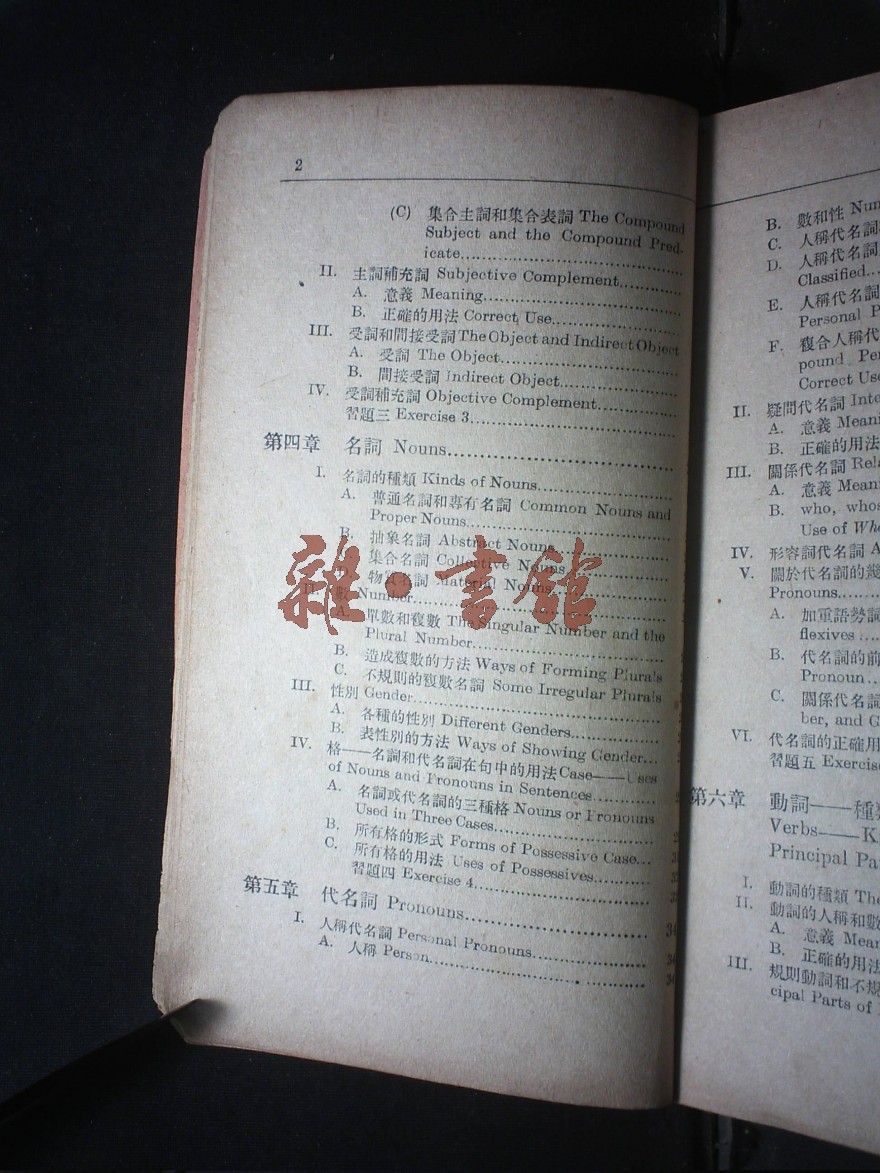 2
(C) 集合主詞和集合表詞 The Compound
Subject and the Compound Pred-
icate
II. 主詞補充詞 Subjective Complement
A. 意義 Meaning
B. 正確的用法 Correct Use
III. 受詞和間接受詞 The Object and Indirect Object
A. 受詞 The Object
B. 間接受詞 Indirect Object
IV. 受詞補充詞 Objective Complement
習題三 Exercise 3
第四章 名詞 Nouns
I. 名詞的種類 Kinds of Nouns
A. 普通名詞和專有名詞 Common Nouns and
Proper Nouns
B. 抽象名詞 Abstract Nouns
集合名詞 Collective Nouns
物質名詞 Material Nouns
II. 數 Number
A. 單數和複數 The Singular Number and the
Plural Number
B. 造成複數的方法 Ways of Forming Plurals
C. 不規則的複數名詞 Some Irregular Plurals
III. 性別 Gender
A. 各種的性別 Different Genders
B. 表性別的方法 Ways of Showing Gender
IV. 格——名詞和代名詞在句中的用法 Case——Uses
of Nouns and Pronouns in Sentences
A. 名詞或代名詞的三種格 Nouns or Pronouns
Used in Three Cases
B. 所有格的形式 Forms of Possessive Case
C. 所有格的用法 Uses of Possessives
習題四 Exercise 4
第五章 代名詞 Pronouns 34
I. 人稱代名詞 Personal Pronouns 34
A. 人稱 Person
雜·書館
B. 數和性
C. 人稱代名詞
D. 人稱代名詞
Classified
E. 人稱代名詞
Personal
F. 複合人稱代
pound
Correct Use
II. 疑問代名詞
A. 意義
B. 正確的用法
III. 關係代名詞
A. 意義
B. who,
Use of
IV. 形容詞代名詞
V. 關於代名詞的
Pronouns
A. 加重語勢
flexives
B. 代名詞的
Pronoun
C. 關係代名詞
ber, and
VI. 代名詞的正確用
習題五
第六章 動詞——種
Verbs——
Principal
I. 動詞的種類
II. 動詞的人稱和數
A. 意義
B. 正確的用法
III. 規則動詞和不規
cipal Parts of